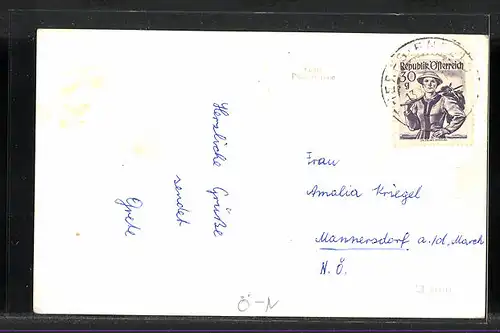 Herzliche Grüße
sendet
Grete
Republik Österreich
30
g
Frau
Amalia Kriegel
Mannersdorf a./d. March
N.Ö.
Ö-N